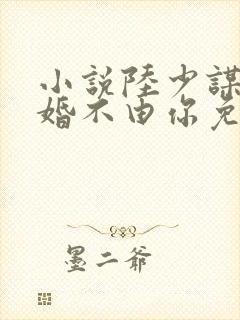 小說陸少謀
婚不由你免
墨二爺